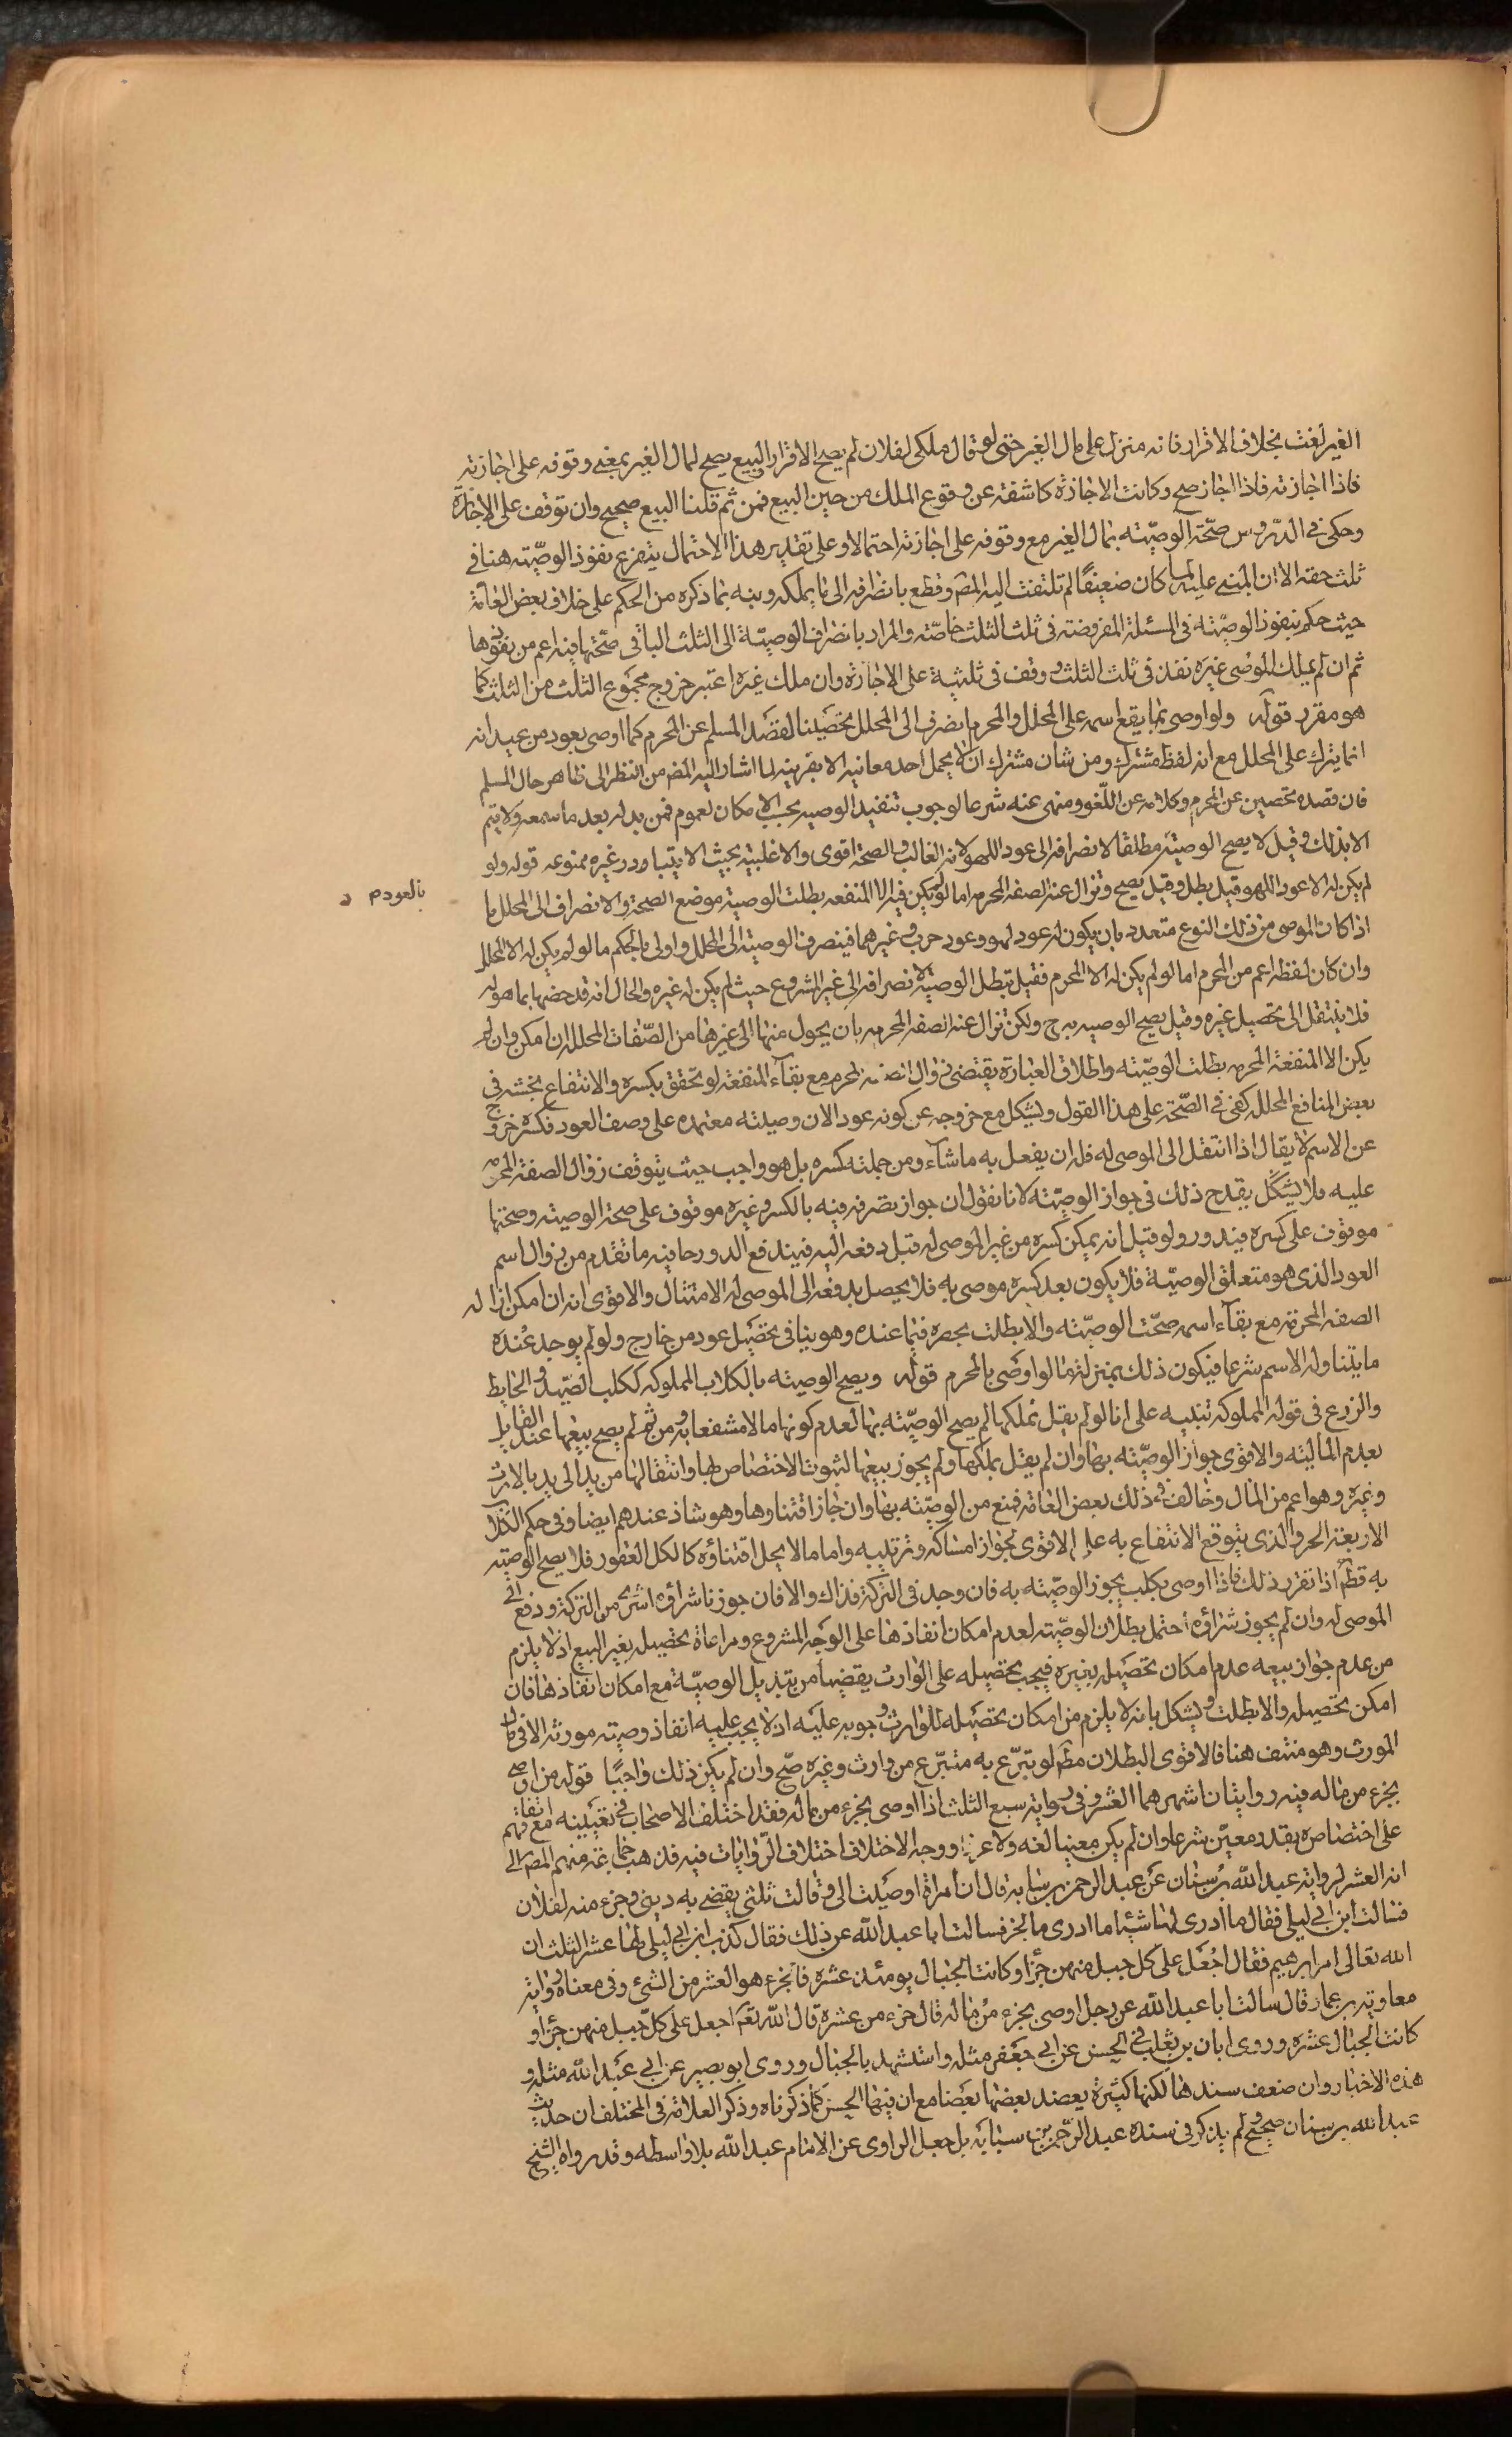 الغير لغت بخلاف الاقرار فانه منزل على مال الغير حتى لو قال ملكي لفلان لم يصح الاقرار والبيع يصح لمال الغير بمعنى وقوفه على اجازته
فاذا اجازته فاذا اجاز صح وكانت الاجازة كاشفة عن وقوع الملك من حين البيع فمن ثم قلنا البيع صحيح وان توقف على الاجازة
وحكى في الدروس صحّة الوصيّة بمال الغير مع وقوفه على اجازته احتمالا وعلى تقدير هذا الاحتمال يتفرع نفوذ الوصيّة هنا في
ثلث حقه الا ان المبنى عليه لما كان ضعيفًا لم تلتفت اليه المص وقطع بانصرافه الى ما يملكه ونبه بما ذكره من الحكم على خلاف بعض العامة
حيث حكم بنفوذ الوصيّة في المسئلة المفروضة في ثلث الثلث خاصّة والمراد بانصراف الوصيّة الى الثلث الباقي صحّتها فيه اعم من نفوذها
ثم ان لم يملك الموصى غيره نفذ في ثلث الثلث ووقف في ثلثيه على الاجازة وان ملك غيره اعتبر خروج مجموع الثلث من الثلث كما
هو مقرر قوله ولو اوصى بما يقع اسمه على المحلل والمحرم انصرف الى المحلل تحصينا لقصد المسلم عن المحرم كما اوصى بعود من عيدانه
انما ينزل على المحلل مع انه لفظ مشترك ومن شان مشترك ان لا يحمل احد معانيه الا بقرينة لما اشار اليه المص من النظر الى ظاهر حال المسلم
فان قصده تحصين عن المحرم وكلامه عن اللّغو ومنهى عنه شرعا لوجوب تنفيذ الوصيه بحسب الامكان لعموم فمن بدله بعد ما سمعه ولا يتم
الا بذلك وقيل لا يصح الوصيّة مطلقا لانصرافه الى عود اللهو لانه الغالب والصحة اقوى والاغلبيّة بحيث لا يتبادر غيره ممنوعه قوله ولو
لم يكن له الا عود اللهو قيل بطل وقيل يصح وتزال عنه الصفة المحرمه اما لو لم يكن فيه الا المنفعه بطلت الوصية موضع الصحة والانصراف الى المحلل ما
بالعود م
اذا كان الموصى من ذلك النوع متعدد بان يكون له عود لهو وعود حرب وغيرهما فينصرف الوصية الى المحلل واولى بالحكم ما لو لم يكن له الا المحلل
وان كان لفظه اعم من المحرم اما لو لم يكن له الا المحرم فقيل تبطل الوصية لانصرافه الى غير المشروع حيث لم يكن له غيره والحال انه قد حصنها بما هو له
فلا ينتقل الى تحصيل غيره وقيل يصح الوصيه به ح ولكن تزال عنه الصفه المحرمه بان يحول منها الى غيرها من الصّفات المحلله ان امكن وان لم
يكن الا المنفعة المحرمه بطلت الوصيّة واطلاق العبارة يقتضى زوال الصفه المحرم مع بقآء المنفعة لو تحقق بكسره والانتفاع بخشبه في
بعض المنافع المحلله كفى في الصّحّة على هذا القول ويشكل مع خروجه عن كونه عود الان وصيته معتمده على وصف العود فكسره خروج
عن الاسم لا يقال اذا انتقل الى الموصى له فله ان يفعل به ما شاء ومن جملته كسره بل هو واجب حيث يتوقف زوال الصفة المحرمه
عليه فلا يشكل يقدح ذلك في جواز الوصيّة لانا نقول ان جواز تصرفه فيه بالكسر وغيره موقوف على صحة الوصية وصحتها
موقوف على كسره فيدور ولو قيل انه يمكن كسره من غير الموصى له قبل دفعه اليه فيندفع الدور جا فيه ما تقدم من زوال اسم
العود الذى هو متعلق الوصيّة فلا يكون بعد كسره موصى به فلا يحصل بدفعه الى الموصى له الامتثال والاقوى انه ان امكن ازاله
الصفه المحرمة مع بقآء اسمه صحّت الوصيّة والا بطلت بحصره فيما عنده وهو ينافى تحصيل عود من خارج ولو لم يوجد عنده
ما يتناوله الاسم شرعا فيكون ذلك بمنزلة ما لو اوصى بالمحرم قوله ويصح الوصيته بالكلاب المملوكه ككلب الصّيد والحايط
والزرع في قوله المملوكه تنبيه على انا لو لم يقل تملكها لم يصح الوصيّة بها لعدم كونها مالا منتفعا به ومن ثم لم يصح بيعها عند القايل
بعدم المالية والاقوى جواز الوصيّة بها وان لم يقل بملكها ولم يجوز بيعها لثبوت الاختصاص بها وانتقالها من يد الى يد بالارث
وغيره وهو اعم من المال وخالف في ذلك بعض العامة فمنع من الوصيّة بها وان جاز اقتناوها وهو شاذ عندهم ايضا وفي حكم الكلاب
الاربعة الجرو الذى يتوقع الانتفاع به على الاقوى لجواز امساكه وتربيبه واما ما لا يحل اقتناؤه كالكل العقور فلا يصح الوصيّة
به قطم اذا تقرر ذلك فاذا اوصى بكلب يجوز الوصيّة به فان وجد في التركة فذاك والا فان جوزنا شراؤه اشترى من التركة ودفع الى
الموصى له وان لم يجوز شراؤه احتمل بطلان الوصيّة لعدم امكان انفاذها على الوجه المشروع ومراعاة تحصيله بغير البيع اذ لا يلزم
من عدم جواز بيعه عدم امكان تحصيله بغيره فيجب تحصيله على الوارث يقضيا من تبديل الوصيّة مع امكان انفاذها فان
امكن تحصيله والا بطلت ويشكل بانه لا يلزم من امكان تحصيله للوارث وجوبه عليه اذ لا يجب عليه انفاذ وصية مورثه الا في مال
المورث وهو منتف هنا فالاقوى البطلان مط لو تبرّع به متبرّع من وارث وغيره صّح وان لم يكن ذلك واجبًا قوله من اوصى
بجزء من ماله فيه روايتان اشهرهما العشر وفي رواية سبع الثلث اذا اوصى بجزء من ماله فقد اختلف الاصحاب في تعيينه مع اتفاقهم
على اختصاصه بقدر معيّن شرعا وان لم يكن معينا لغه ولا عرفا ووجه الاختلاف اختلاف الرّوايات فيه فذهب جماعة منهم المص الى
انه العشر لرواية عبد اللّه بن سنان عن عبد الرحمن بن سيابه قال ان امراة اوصيت الى وقالت ثلثى يقضى به دينى وجزء منه لفلان
فسالت ابن ابى ليلى فقال ما ادرى لها شيئا ما ادرى ما الجز فسالت ابا عبد اللّه عن ذلك فقال كذب ابن ابى ليلى لها عشر الثلث ان
اللّه تعالى امر ابرهيم فقال اجعل على كل جبل منهن جزءا وكانت الجبال يومئذ عشرة فالجزء هو العشر من الشئ وفى معناه رواية
معاوية بن عمار قال سالت ابا عبد اللّه عن رجل اوصى بجزء من ماله قال جزء من عشرة قال اللّه تعم اجعل على كل جبل منهن جزءا و
كانت الجبال عشره وروى ابان بن تغلب فى الحسن عن ابى جعفر مثله واستشهد بالجبال وروى ابو بصير عن ابى عبد اللّه مثله و
هذه الاخبار وان ضعف سندها لكنها كثيرة يعضد بعضها بعضا مع ان فيها الحسن كما ذكرناه وذكر العلامة في المختلف ان حديث
عبد اللّه بن سنان صحيح ولم يذكر فى سنده عبد الرّحمن بن سيابه بل جعل الراوى عن الامام عبد اللّه بلا واسطه وقد رواه الشيخ